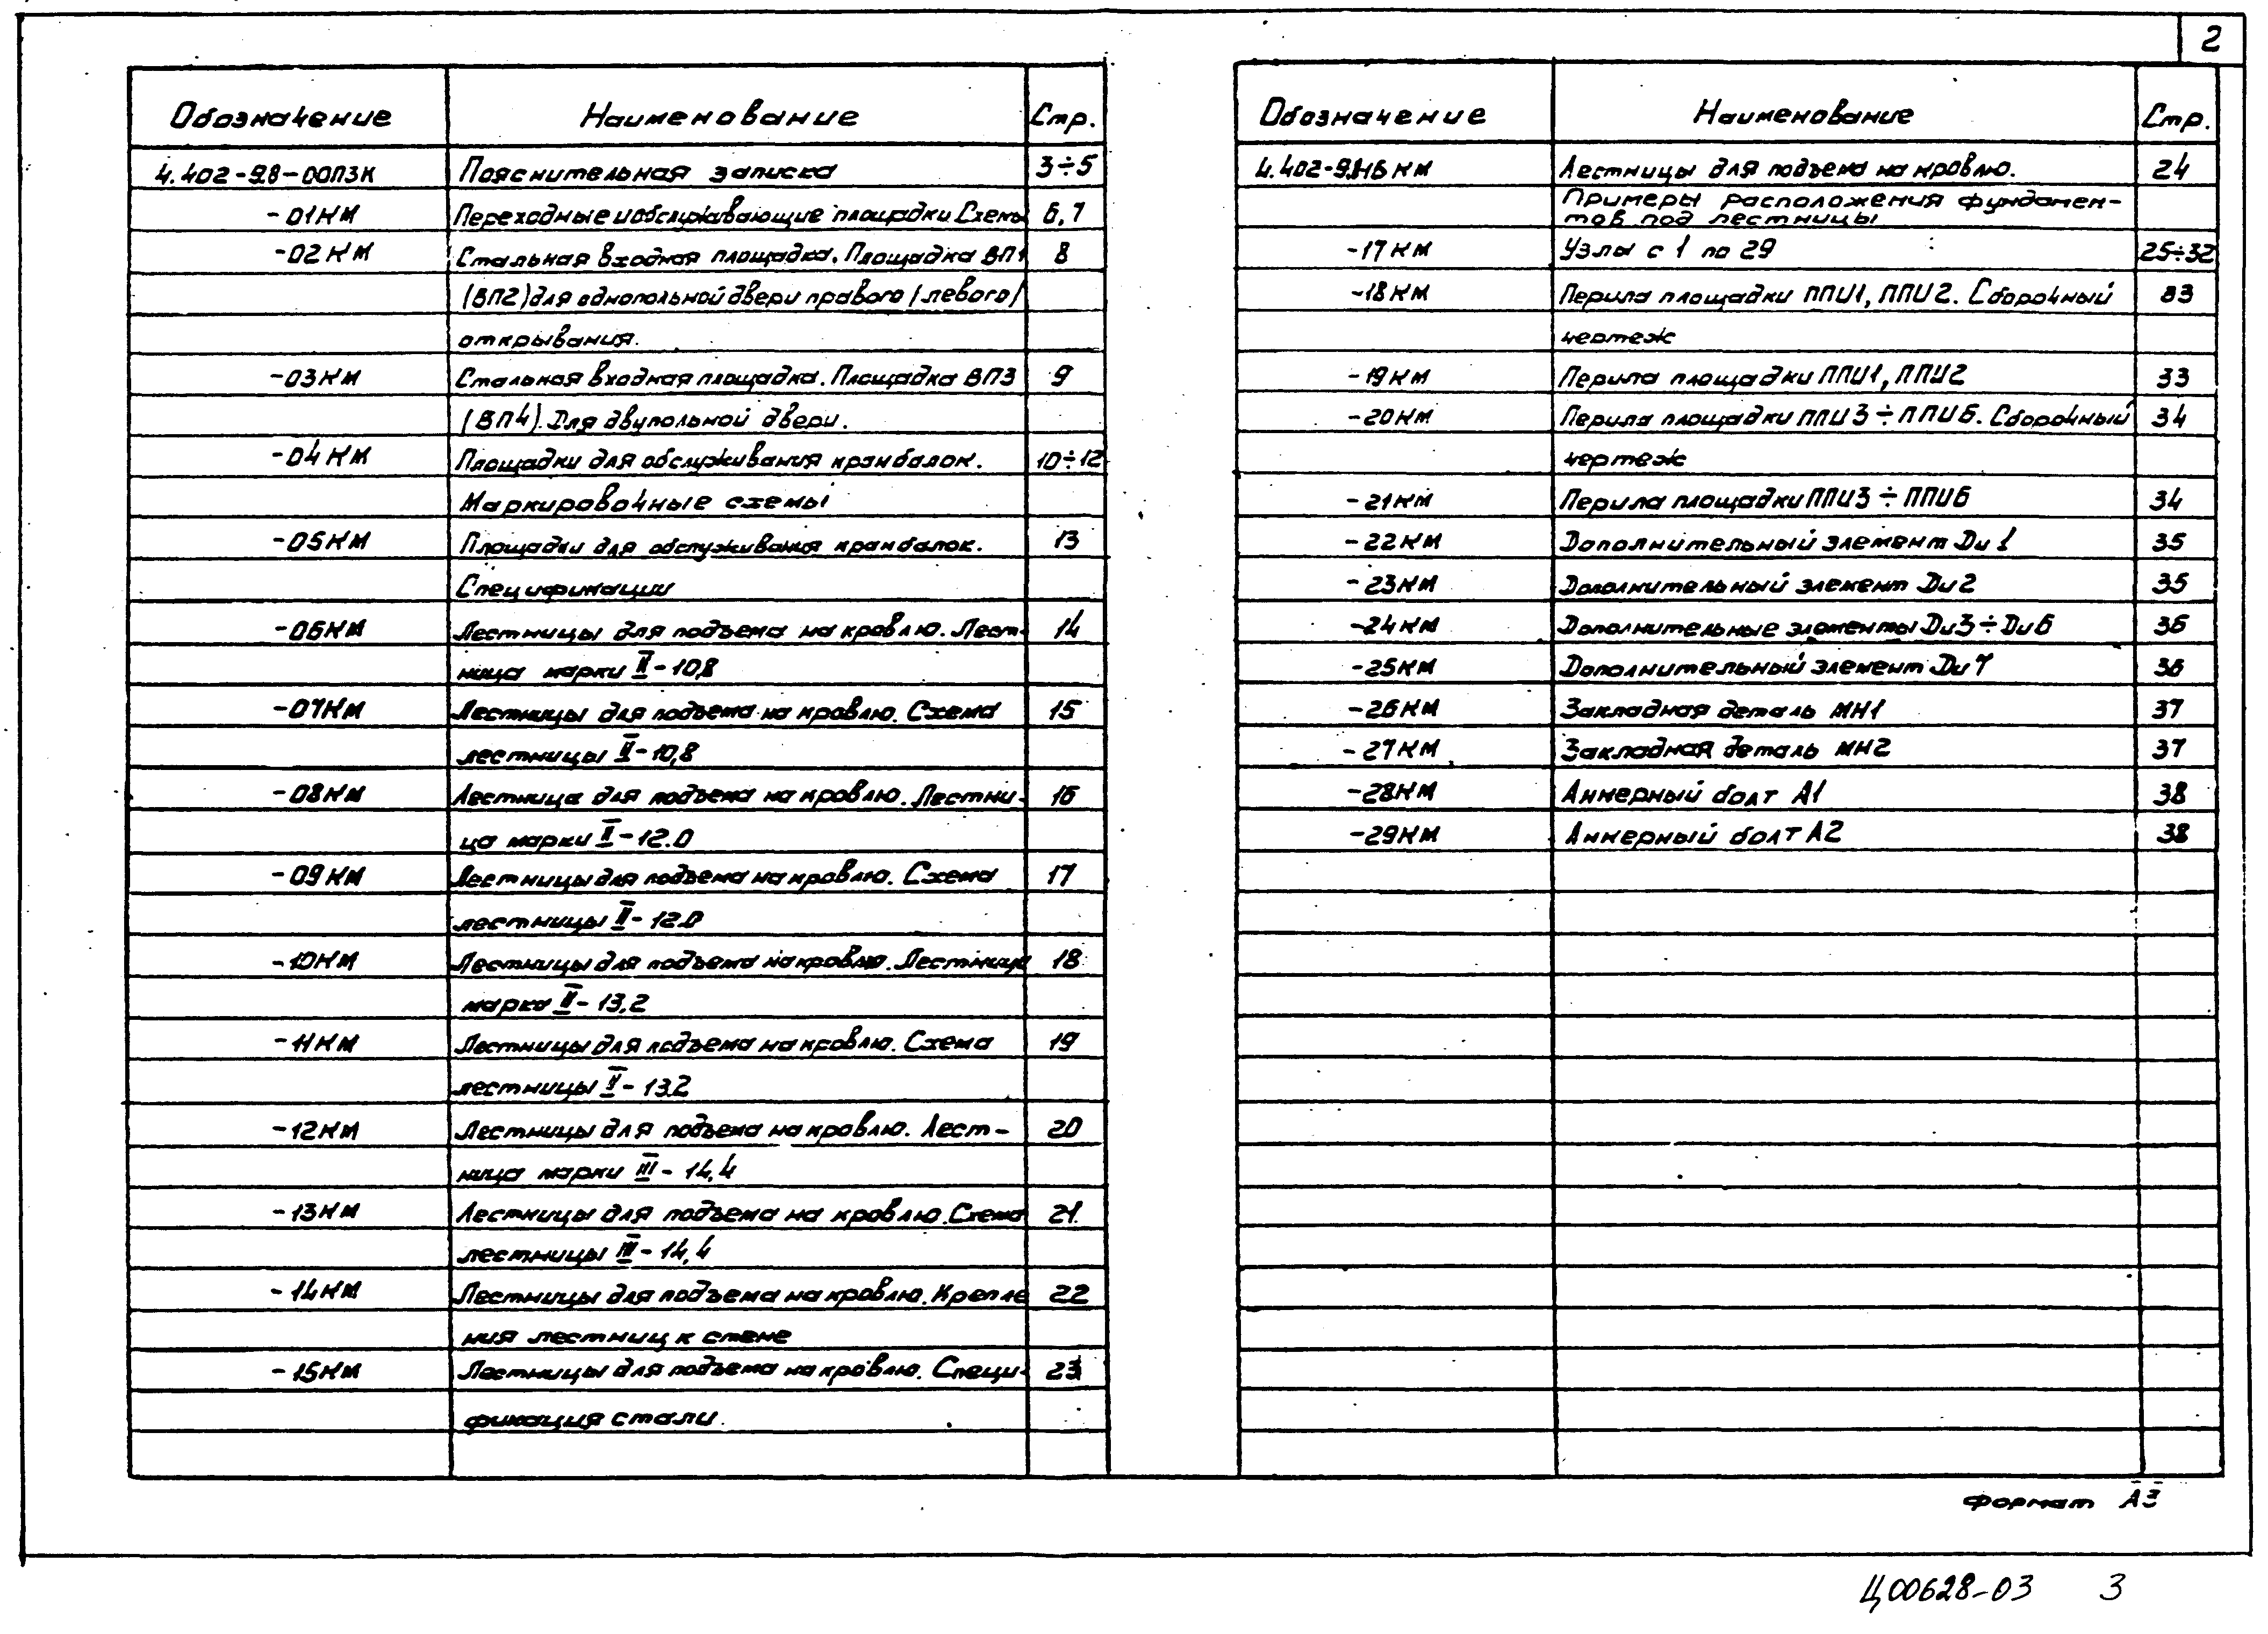 2
Обозначение Наименование Стр.
4.402-9.8-00ПЗК Пояснительная записка 3÷5
-01КМ Переходные и обслуживающие площадки Схемы 6,7
-02КМ Стальная входная площадка. Площадка ВП1 8
(ВП2) для однопольной двери правого /левого/
открывания.
-03КМ Стальная входная площадка. Площадка ВП3 9
(ВП4). Для двупольной двери.
-04КМ Площадки для обслуживания кранбалок. 10÷12
Маркировочные схемы
-05КМ Площадки для обслуживания кранбалок. 13
Спецификации
-06КМ Лестницы для подъема на кровлю. Лест- 14
ница марки II-10,8
-07КМ Лестницы для подъема на кровлю. Схема 15
лестницы II-10,8
-08КМ Лестница для подъема на кровлю. Лестни- 16
ца марки II-12.0
-09КМ Лестницы для подъема на кровлю. Схема 17
лестницы II-12.0
-10КМ Лестницы для подъема на кровлю. Лестница 18
марка II-13,2
-11КМ Лестницы для подъема на кровлю. Схема 19
лестницы II-13.2
-12КМ Лестницы для подъема на кровлю. Лест- 20
ница марки III-14,4
-13КМ Лестницы для подъема на кровлю. Схема 21
лестницы III-14,4
-14КМ Лестницы для подъема на кровлю. Крепле 22
ния лестниц к стене
-15КМ Лестницы для подъема на кровлю. Специ- 23
фикация стали.
Обозначение Наименование Стр.
4.402-9.8-16КМ Лестницы для подъема на кровлю. 24
Примеры расположения фундамен-
тов под лестницы
-17КМ Узлы с 1 по 29 25÷32
-18КМ Перила площадки ППИ1, ППИ2. Сборочный 33
чертеж
-19КМ Перила площадки ППИ1, ППИ2 33
-20КМ Перила площадки ППИ3÷ППИ6. Сборочный 34
чертеж
-21КМ Перила площадки ППИ3÷ППИ6 34
-22КМ Дополнительный элемент Ди1 35
-23КМ Дополнительный элемент Ди2 35
-24КМ Дополнительные элементы Ди3÷Ди6 36
-25КМ Дополнительный элемент Ди7 36
-26КМ Закладная деталь МН1 37
-27КМ Закладная деталь МН2 37
-28КМ Анкерный болт А1 38
-29КМ Анкерный болт А2 38
Формат А3
Ц00628-03 3